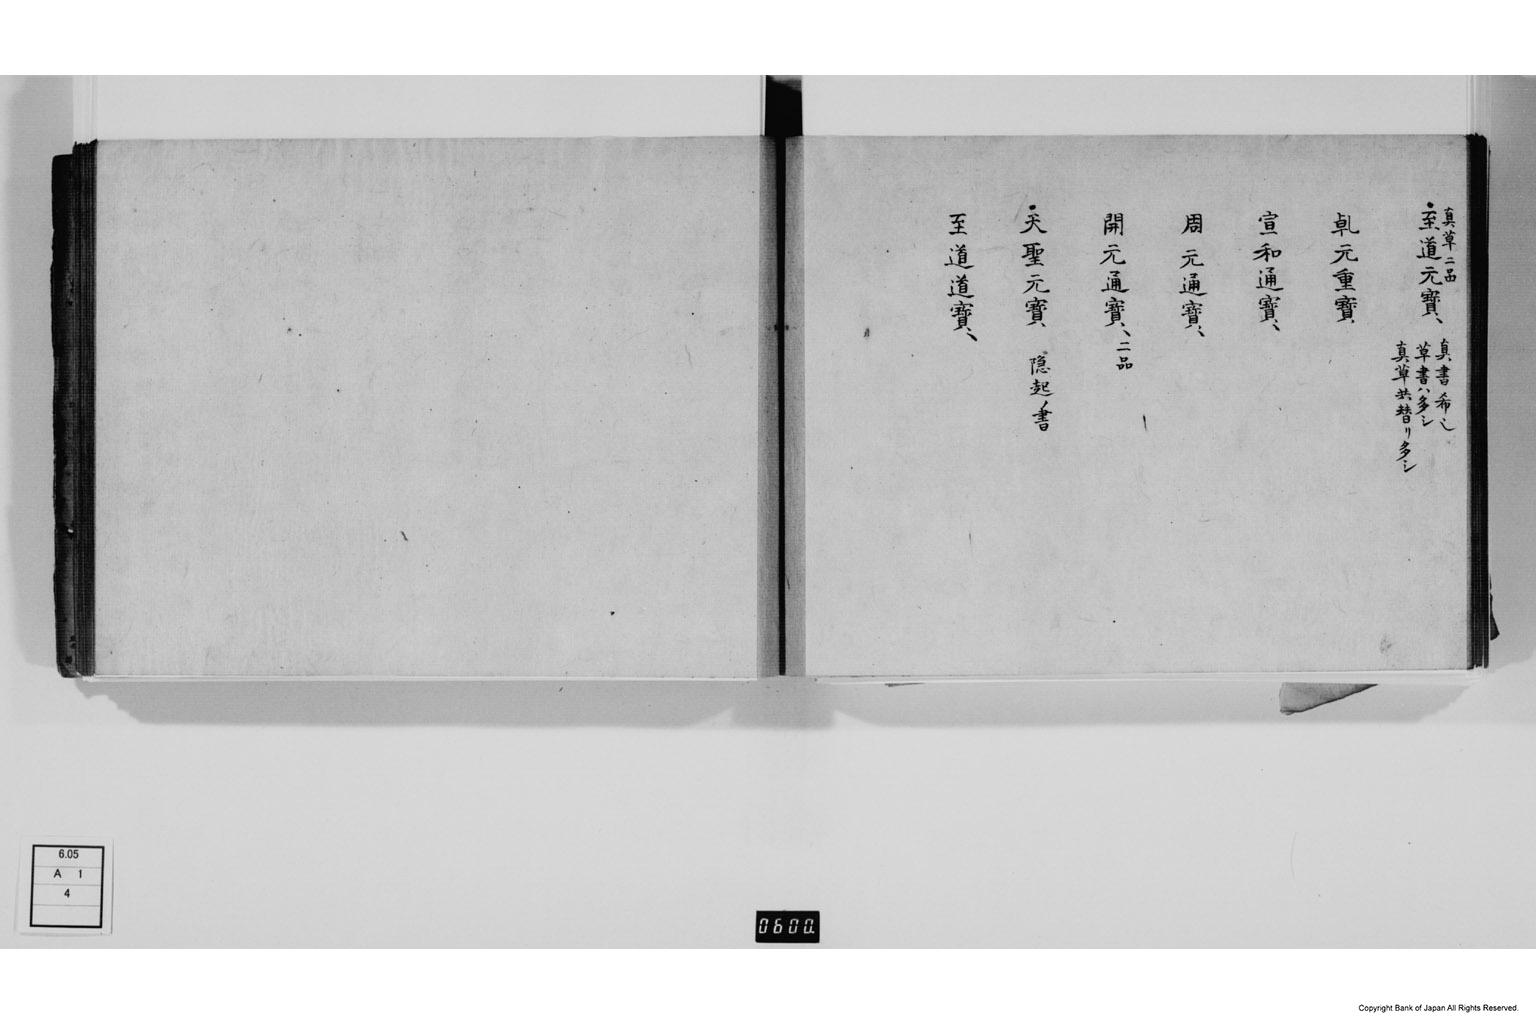 真草二品
・至道元寳、
真書希し
草書ハ多シ
真草共替リ多シ
乹元重寳
宣和通寳、
周元通寳、
開元通寳、二品
・天聖元寳、 隠起ノ書
至道道寳、
6.05
A 1
4
0600.
Copyright Bank of Japan All Rights Reserved.